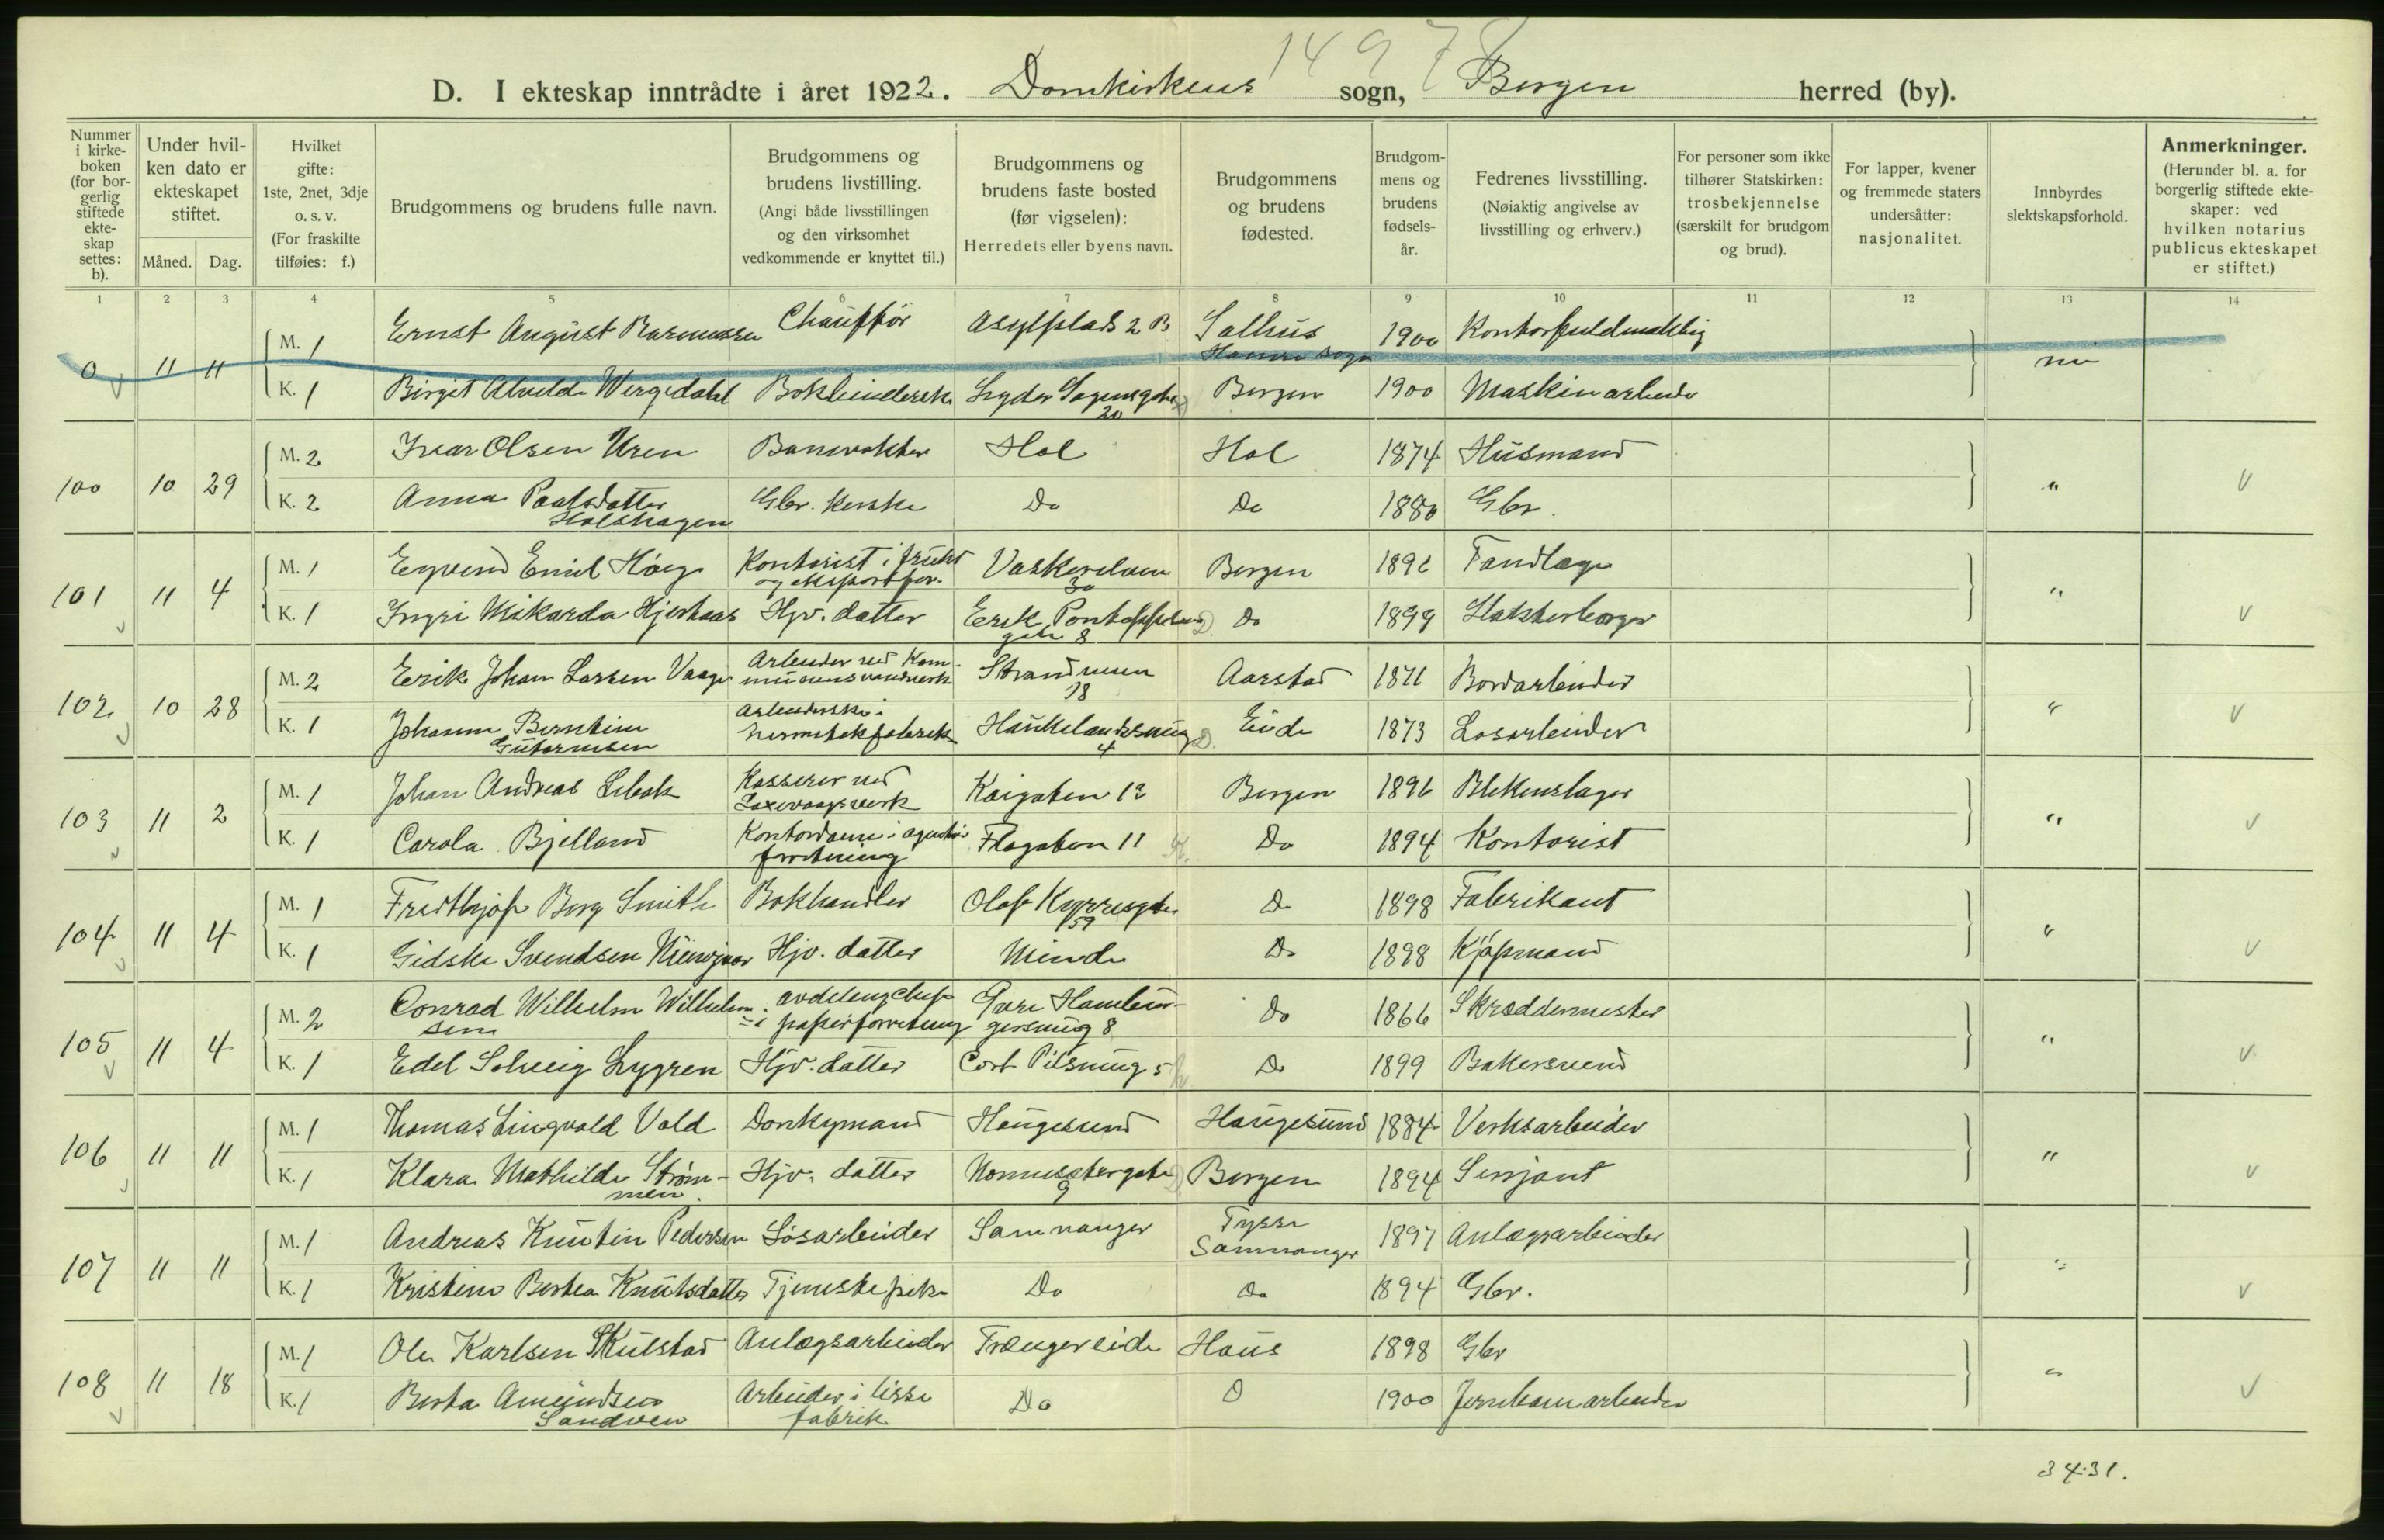 1497
D. I ekteskap inntrådte i året 1922. Domkirkens sogn, Bergen herred (by).
Nummer i kirkeboken (for borgerlig stiftede ekteskap settes: b).
Under hvilken dato er ekteskapet stiftet.
Måned. Dag.
Hvilket gifte: 1ste, 2net, 3dje o. s. v. (For fraskilte tilføies: f.)
Brudgommens og brudens fulle navn.
Brudgommens og brudens livstilling. (Angi både livsstillingen og den virksomhet vedkommende er knyttet til.)
Brudgommens og brudens faste bosted (før vigselen): Herredets eller byens navn.
Brudgommens og brudens fødested.
Brudgommens og brudens fødselsår.
Fedrenes livsstilling. (Nøiaktig angivelse av livsstilling og erhverv.)
For personer som ikke tilhører Statskirken: trosbekjennelse (særskilt for brudgom og brud).
For lapper, kvener og fremmede staters undersåtter: nasjonalitet.
Innbyrdes slektskapsforhold.
Anmerkninger. (Herunder bl. a. for borgerlig stiftede ekteskaper: ved hvilken notarius publicus ekteskapet er stiftet.)
1 2 3 4 5 6 7 8 9 10 11 12 13 14
0 11 11 M. 1 Ernst August Rasmussen Chauffør Asylplads 2 B Salhus Hamre sogn 1900 Kontorfuldmektig
K. 1 Birgit Alvilde Wergedahl Bokbinderske Lyder Sagensgate 20 Bergen 1900 Maskinarbeider
100 10 29 M. 2 Ivar Olsen Uren Banevokter Hol Hol 1874 Husmand " V
K. 2 Anna Paalsdatter Holshagen Gbr. Do Do 1880 Gbr.
101 11 4 M. 1 Eyvind Emil Høeg Kontorist i frukt og eksportfor. Vaskerelven 30 Bergen Tandlæge " V
K. 1 Hjv. datter Erik Pontoppidans gate 8 Do 1899
102 10 28 M. 2 Erik Johan Larsen Vaage Arbeider ved Kommunens vandverk 18 Aarstad 1871 Bordarbeider " V
K. 1 Guttormsen Arbeiderske i hermetikfabrik Haukelandsveug 4 Eide 1873 Løsarbeider
103 11 2 M. 1 Johan Andreas Kasserer ved Laxevaagsverk Kaigaten 12 Bergen 1896 Blikenslager " V
K. 1 Carola Bjelland Kontordame i agentur forretning Flagaten 11 Do 1894 Kontorist
104 11 4 M. 1 Fridthjof Berg Smith Bokhandler Olaf Kyrresgate 59 Do 1898 Fabrikant " V
K. 1 Gidske Svendsen Hjv. datter Minde Do 1898 Kjøpmand
105 11 4 M. 2 Conrad Wilhelm Wilhelmsen avdelingchef i papirforretning 8 Do 1866 Skræddermester " V
K. 1 Edel Solveig Lygren Hjv. datter Cort Pilsmug 5 Do 1899 Bakersvend
106 11 11 M. 1 Thomas Lingvald Vold Donkymand Haugesund Haugesund 1884 Verksarbeider " V
K. 1 Klara Mathilde Strømmen Hjv. datter Nonnestergate 9 Bergen 1894 Sersjant
107 11 11 M. 1 Andreas Knutin Pedersen Løsarbeider Samnanger Tysse Samnanger 1897 Anlægsarbeider " V
K. 1 Kristine Bertea Knutsdatter Tjenestepike Do Do 1894 Gbr.
108 11 18 M. 1 Ole Karlsen Skulstad Anlægsarbeider Trengereide Haus 1898 Gbr " V
K. 1 Berta Amundsen Sandven Arbeider i lisse fabrik Do D 1900 Jernbanearbeider
3431.